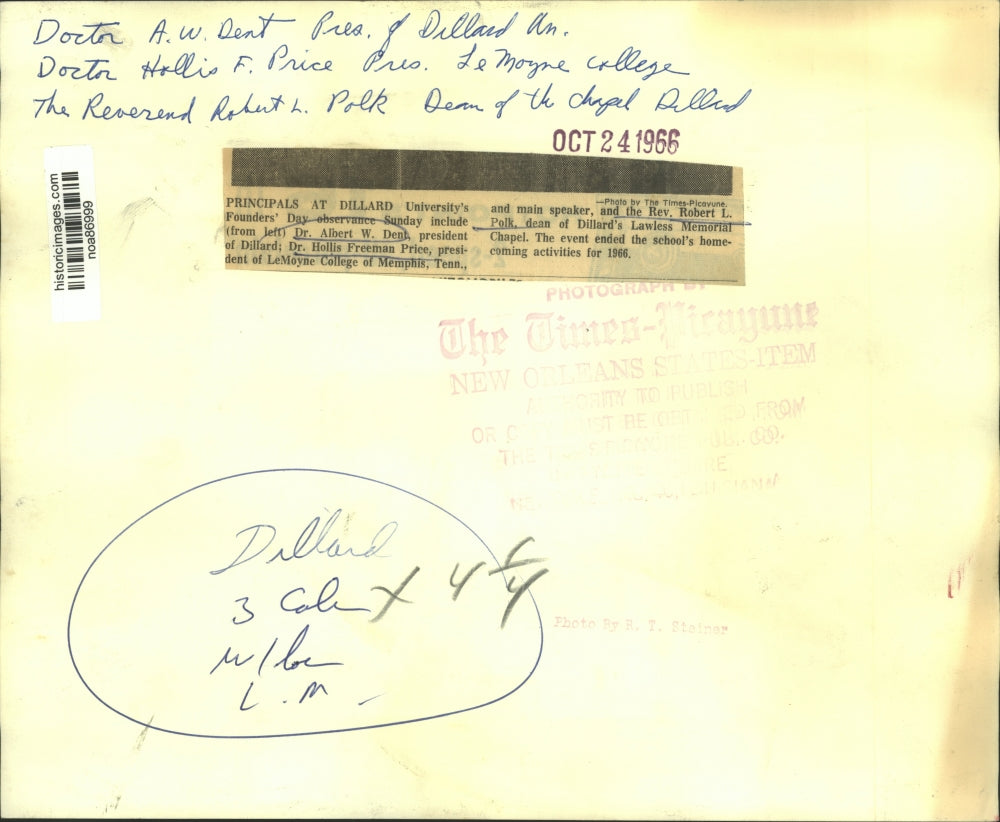 Doctor A.W. Dent Pres. of Dillard Un.
Doctor Hollis F. Price Pres. LeMoyne College
The Reverend Robert L. Polk Dean of the chapel Dillard
OCT 24 1966
historicimages.com
noa86999
PRINCIPALS AT DILLARD University's
Founders' Day observance Sunday include
(from left) Dr. Albert W. Dent, president
of Dillard; Dr. Hollis Freeman Price, presi-
dent of LeMoyne College of Memphis, Tenn.,
—Photo by The Times-Picayune.
and main speaker, and the Rev. Robert L.
Polk, dean of Dillard's Lawless Memorial
Chapel. The event ended the school's home-
coming activities for 1966.
PHOTOGRAPH BY
The Times-Picayune
NEW ORLEANS STATES-ITEM
AUTHORITY TO PUBLISH
OR COPY MUST BE OBTAINED FROM
THE TIMES-PICAYUNE PUB. CO.
Dillard
3 Col X 4
L.M.
Photo By R. T. Steiner